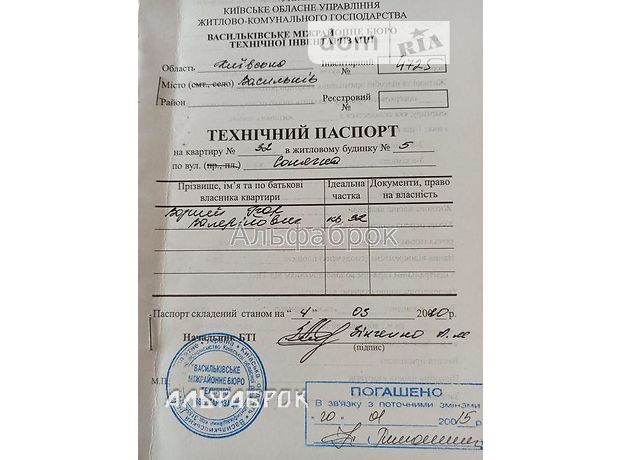 КИЇВСЬКЕ ОБЛАСНЕ УПРАВЛІННЯ
ЖИТЛОВО-КОМУНАЛЬНОГО ГОСПОДАРСТВА
ВАСИЛЬКІВСЬКЕ МІЖРАЙОННЕ БЮРО
ТЕХНІЧНОЇ ІНВЕНТАРИЗАЦІЇ
dom RIA
Область Київська Інвентарний № 4725
Місто (смт., село) Васильків
Район Реєстровий №
ТЕХНІЧНИЙ ПАСПОРТ
на квартиру № 32 в житловому будинку № 5
по вул. (пр., пл.)
Прізвище, ім'я та по батькові власника квартири
Ідеальна частка
Документи, право на власність
Валерійович кв. 32
Альфаброк
Паспорт складений станом на " 4 " 03 2010р.
Начальник БТІ Зінченко
(підпис)
М.П.
"ВАСИЛЬКІВСЬКЕ
МІЖРАЙОННЕ БЮРО
ТЕХНІЧНОЇ
АЛЬФАБРОК
ПОГАШЕНО
В зв'язку з поточними змінами
"20" 01 2015р.